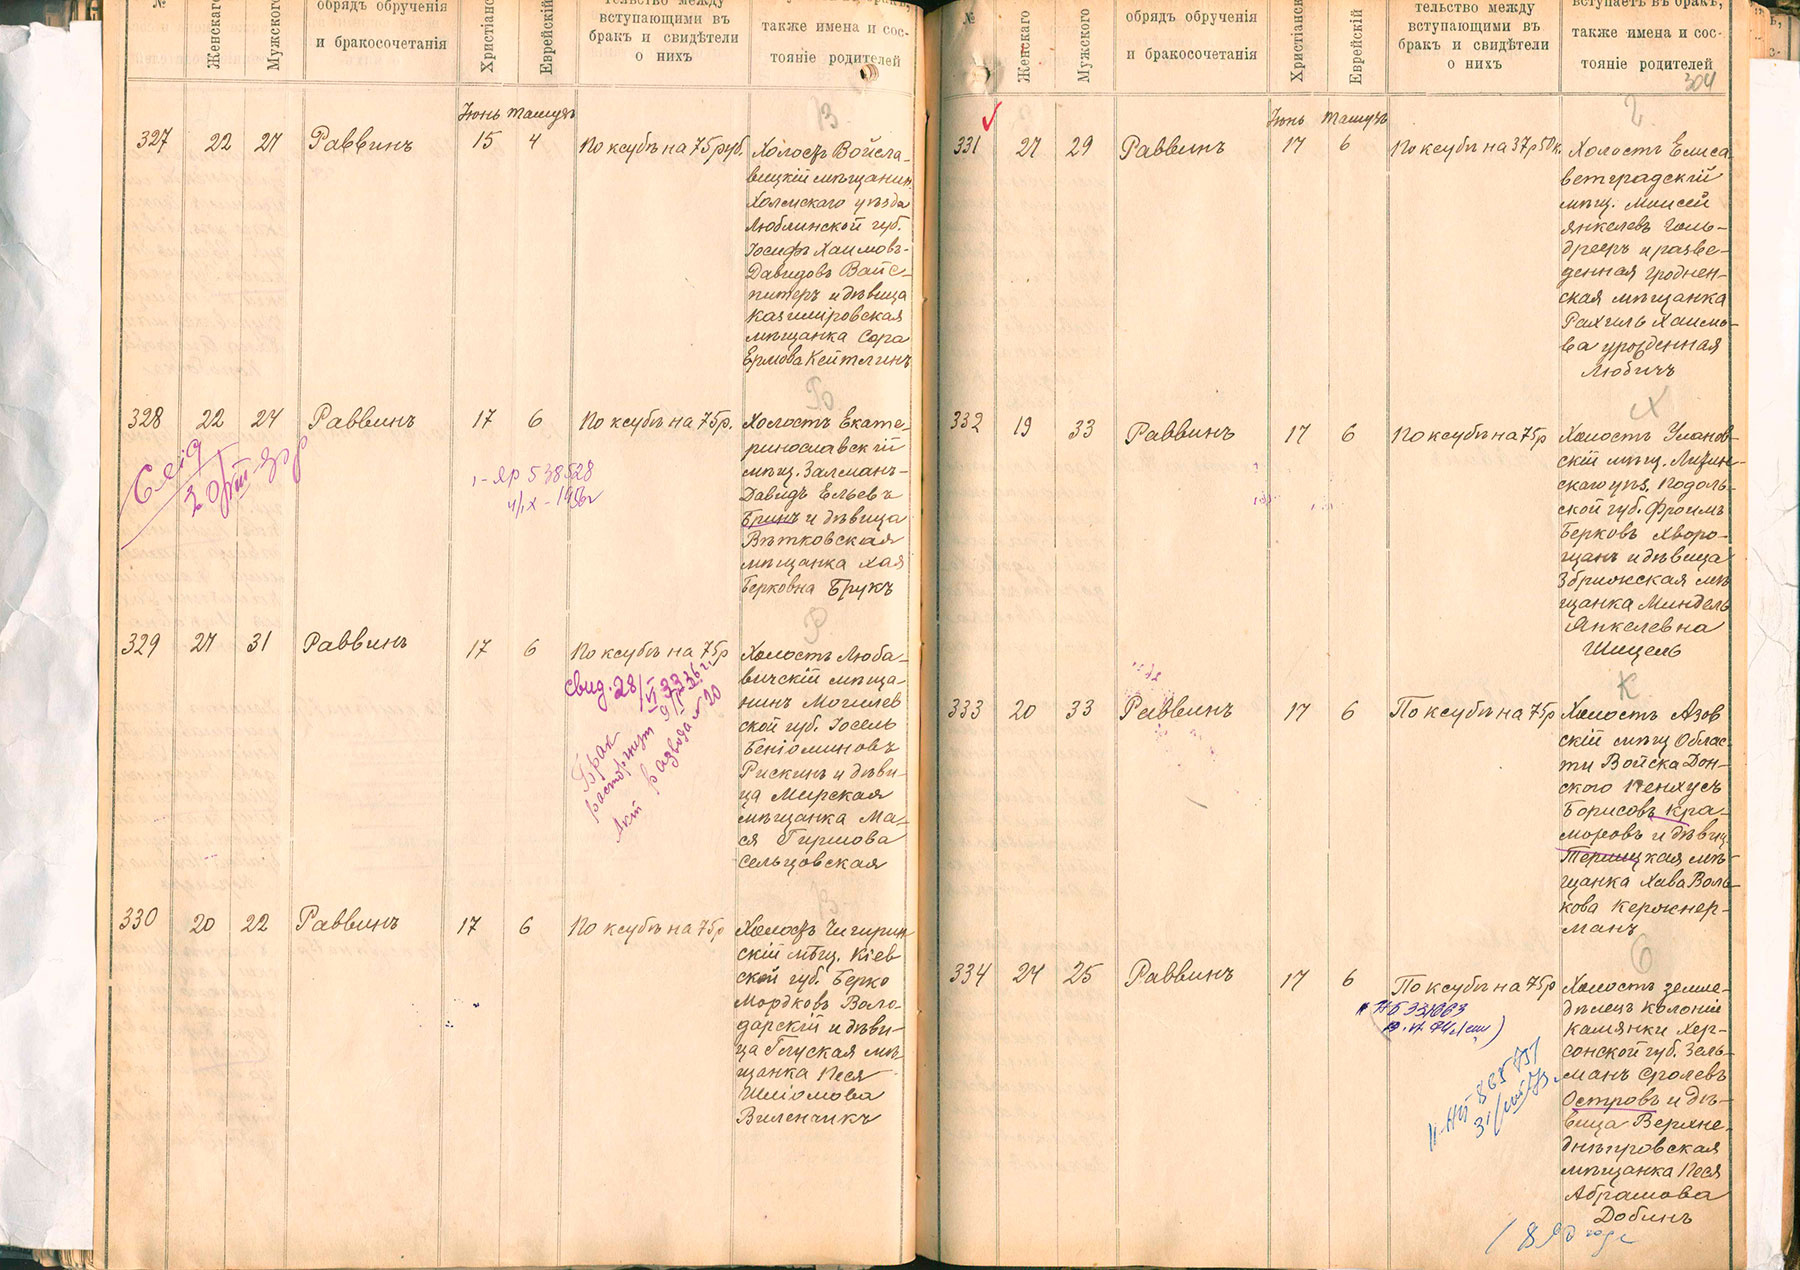 №
Женскаго
Мужского
обрядъ обрученія
и бракосочетанія
Христіанск
Еврейскій
тельство между
вступающими въ
бракъ и свидѣтели
о нихъ
также имена и сос-
тояніе родителей
Іюнь Тамузъ
327 22 27 Раввинъ 15 4 По ксубѣ на 75 руб.
Холостъ Войсла-
вицкій мѣщанин
Холмскаго уѣзда
Люблинской губ.
Іосифъ Хаимовъ-
Давидовъ Вайс-
питеръ и дѣвица
Казимировская
мѣщанка Сора
Ермова Кейтлинъ
328 22 27 Раввинъ 17 6 По ксубѣ на 75 р.
Холостъ Екате-
ринославскій
мѣщ. Залманъ-
Давидъ Ельевъ
Бринъ и дѣвица
Вѣтковская
мѣщанка Хая
Берковна Брукъ
I-ЯР 538528
329 27 31 Раввинъ 17 6 По ксубѣ на 75 р
Холостъ Люба-
вичскій мѣща-
нинъ Могилев
ской губ. Іосель
Беніоминовъ
Рискинъ и дѣви-
ца Мирская
мѣщанка Ма-
ся Гиршова
Сельцовская
свид. 28/VI 33
Брак
расторжгнут
Акт развода № 20
330 20 22 Раввинъ 17 6 По ксубѣ на 75 р
Холостъ Чигирин
скій мѣщ. Кіев
ской губ. Берко
Мордковъ Воло-
дарскій и дѣви-
ца Глуская мѣ-
щанка Песя
Шліомова
Виленчикъ
№
Женскаго
Мужского
обрядъ обрученія
и бракосочетанія
Христіанск
Еврейскій
тельство между
вступающими въ
бракъ и свидѣтели
о нихъ
вступаетъ въ бракъ,
также имена и сос-
тояніе родителей
304
Іюнь Тамузъ
331 27 29 Раввинъ 17 6 По ксубѣ на 37 р 50 к.
Холостъ Елиса
ветградскій
мѣщ. Моисей
Янкелевъ Голь-
дрееръ и разве-
денная Гроднен-
ская мѣщанка
Рахиль Хаимо-
ва урожденная
Любичъ
332 19 33 Раввинъ 17 6 По ксубѣ на 75 р
Холостъ Уланов-
скій мѣщ. Литин-
скаго уѣз. Подоль-
ской губ. Фроимъ
Берковъ Хворо-
щанъ и дѣвица
Збрижская мѣ
щанка Миндель
Янкелевна
Шицель
333 20 33 Раввинъ 17 6 По ксубѣ на 75 р
К
Холостъ Азов
скій мѣщ Облас-
ти Войска Дон-
ского Пенхусъ
Борисовъ Кра-
моровъ и дѣвиц
кая мѣ-
щанка Хава Воль-
кова Кержнер-
манъ
334 24 25 Раввинъ 17 6 По ксубѣ на 75 р
Холостъ земле-
дѣлецъ колоніи
Камянки Хер-
сонской губ. Зель-
манъ Сролевъ
Островъ и дѣ-
вица Верхне-
днѣпровская
мѣщанка Песя
Абрамова
Добинъ